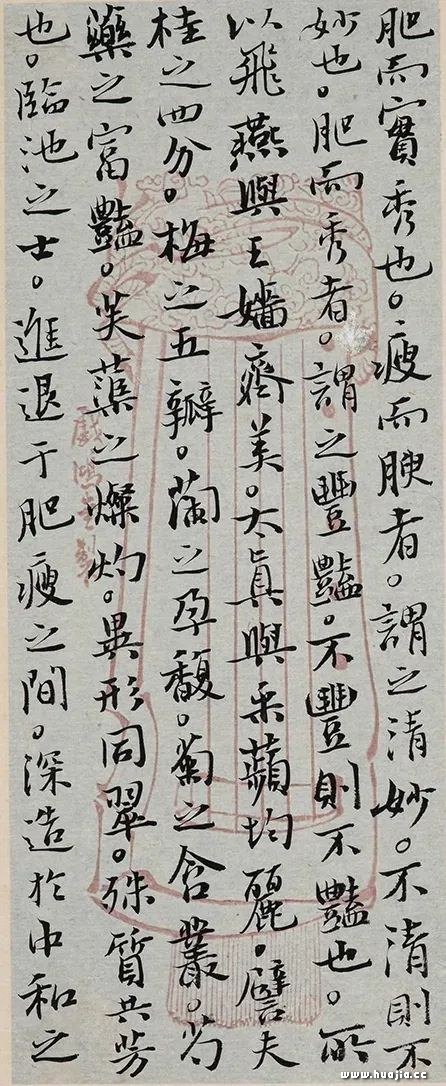 肥而實秀也。瘦而腴者。謂之清妙。不清則不
妙也。肥而秀者。謂之豐豔。不豐則不豔也。所
以飛燕與王嬙齊美。太真與采蘋均麗。譬夫
桂之四分。梅之五瓣。蘭之孕馥。菊之含叢。芍
藥之富豔。芙蕖之燦灼。異形同翠。殊質共芳
也。臨池之士。進退于肥瘦之間。深造於中和之
戲鴻堂製
www.huajia.cc